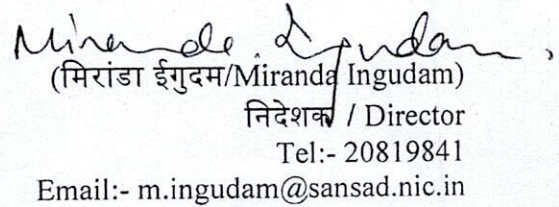 Miranda Ingudam.
(मिरांडा ईगुदम/Miranda Ingudam)
निदेशक / Director
Tel:- 20819841
Email:- m.ingudam@sansad.nic.in